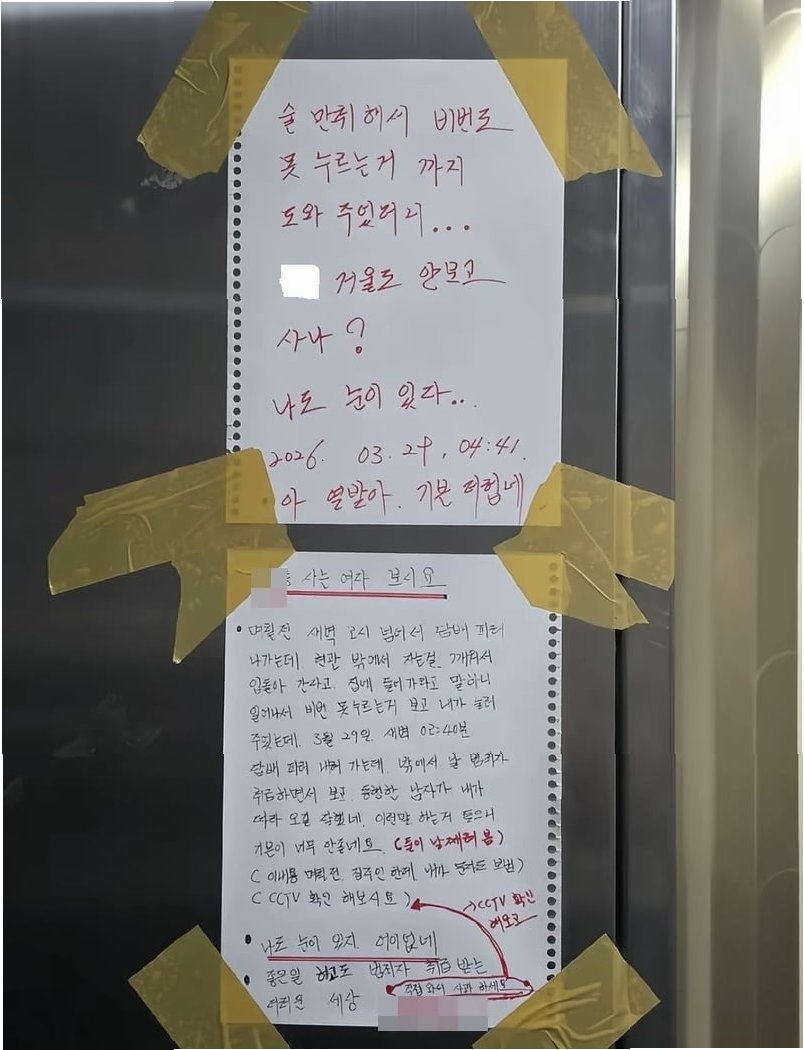 술 만취해서 비번도
못 누르는거 까지
도와 주었더니...
거울도 안보고
사나?
나도 눈이 있다..
2026. 03. 29, 04:41.
아 열받아. 기분 더럽네
사는 여자 보시요
몇일전 새벽 2시 넘어서 담배 피러
나가는데. 현관 밖에서 자는걸. 깨워서
입돌아 간다고. 집에 들어가라고 말하니
일어나서 비번 못누르는거 보고 내가 눌러
주었는데. 3월 29일. 새벽 02:40분
담배 피러 내려 가는데. 밖에서 날 범죄자
취급하면서 보고. 동행한 남자가 내가
따라 오길 잘했네. 이런말 하는거 들으니
기분이 너무 안좋네요. (둘이 날째려 봄)
( 이내용 몇일전. 집주인 한테 내가 문자도 보냄)
( CCTV 확인 해보시요 )
→ CCTV 확인
해보고
나도 눈이 있지 어이없네
좋은일 하고도 범죄자 취급 받는
더러운 세상
직접 와서 사과 하세요